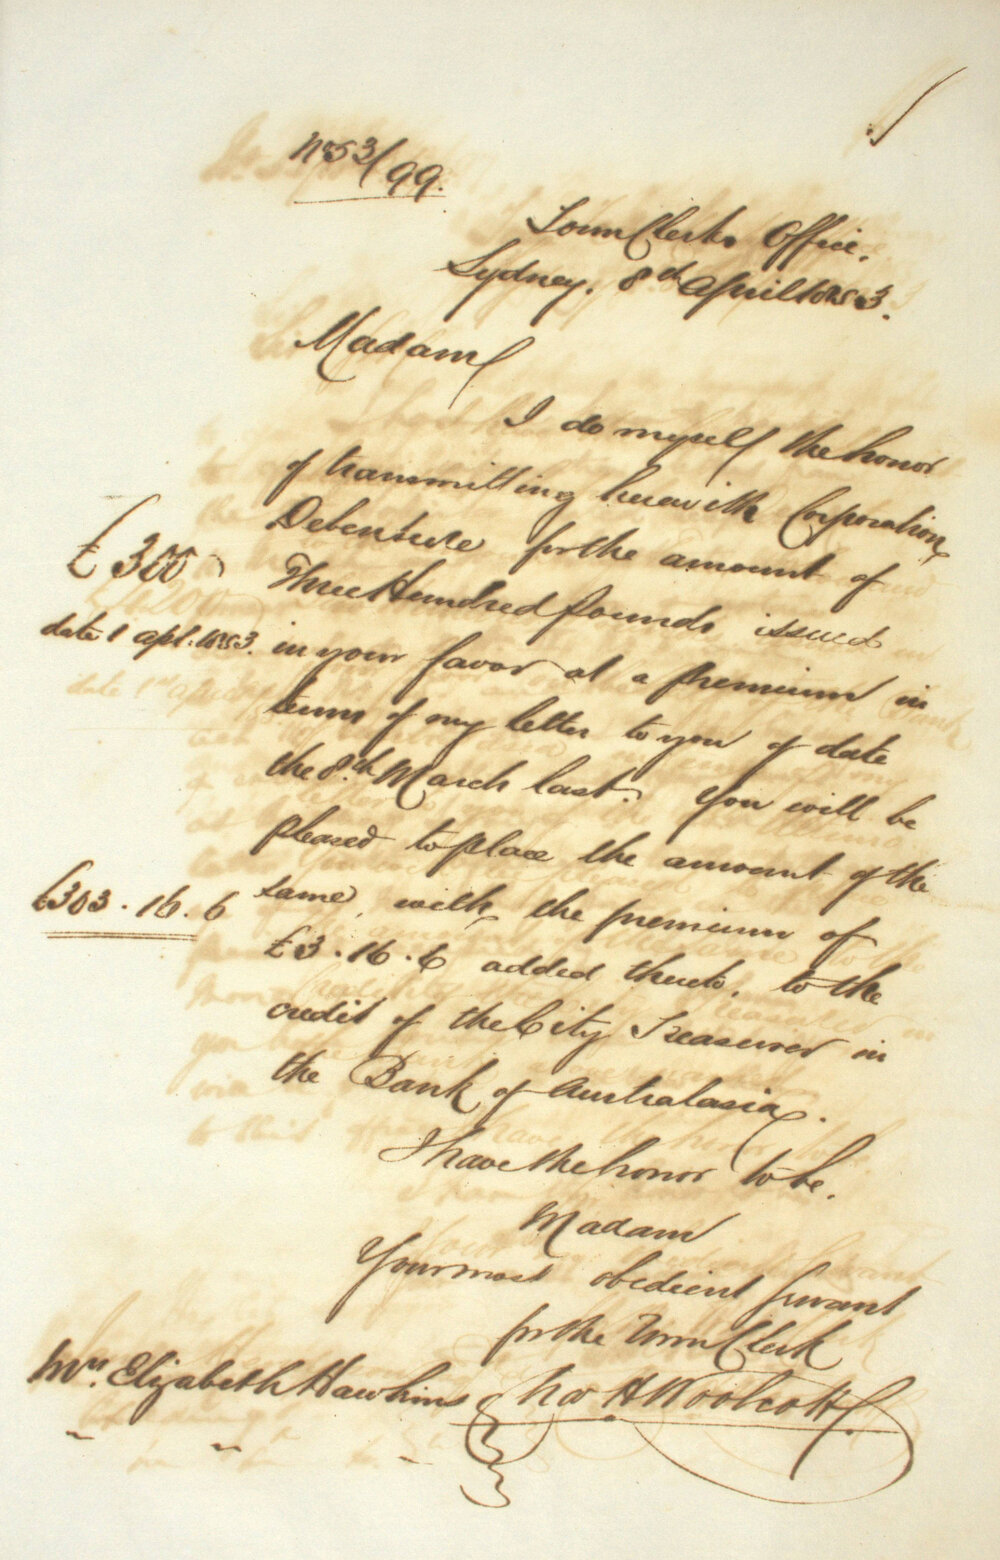 No 53/99.
Town Clerks Office.
Sydney. 8th April 1853.
Madam
I do myself the honor
of transmitting herewith Corporation
Debenture for the amount of
£300
Three Hundred pounds issued
date 1 Apl: 1853.
in your favor at a premium in
terms of my letter to you of date
the 8th March last. You will be
pleased to place the amount of the
£303.16.6
same, with the premium of
£3.16.6 added thereto, to the
credit of the City Treasurer in
the Bank of Australasia.
I have the honor to be.
Madam
Your most obedient Servant
for the Town Clerk
Mrs. Elizabeth Hawkins
Chas H Woolcott